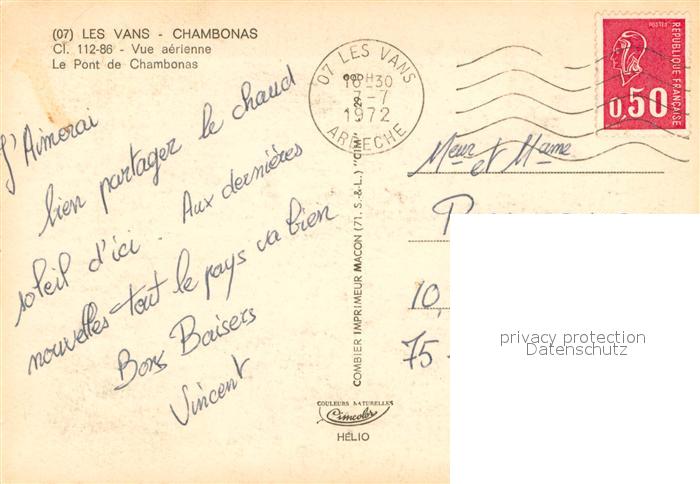 (07) LES VANS - CHAMBONAS
Cl. 112-86 - Vue aérienne
Le Pont de Chambonas
J'Aimerai
bien partager le chaud
soleil d'ici. Aux dernières
nouvelles tout le pays va bien
Bons Baisers
Vincent
07 LES VANS
16H30
7-7
1972
ARDECHE
COMBIER IMPRIMEUR MACON (71. S.-&.L.) "CIM"
COULEURS NATURELLES
Cimcolor
HÉLIO
POSTES
REPUBLIQUE FRANÇAISE
0,50
Meur et Mame
10,
75-
privacy protection
Datenschutz